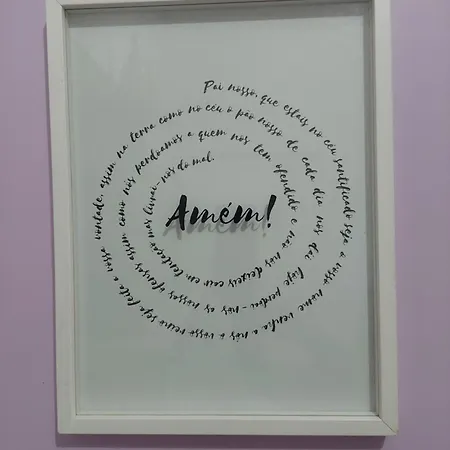 Pai nosso, que estais no céu santificado seja o vosso nome venha a nós o vosso reino seja feita a vossa vontade, assim na terra como no céu o pão nosso de cada dia nos dai hoje perdoai-nos as nossas ofensas assim como nós perdoamos a quem nos tem ofendido e não nos deixeis cair em tentação mas livrai-nos do mal.
Amém!